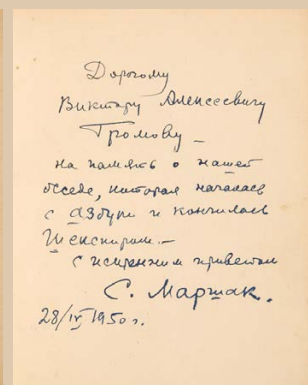 Дорогому
Виктору Алексеевичу
Громову —
на память о нашей
беседе, которая началась
с азбуки и кончилась
Шекспиром. —
С искренним приветом
С. Маршак.
28/IV 1950 г.